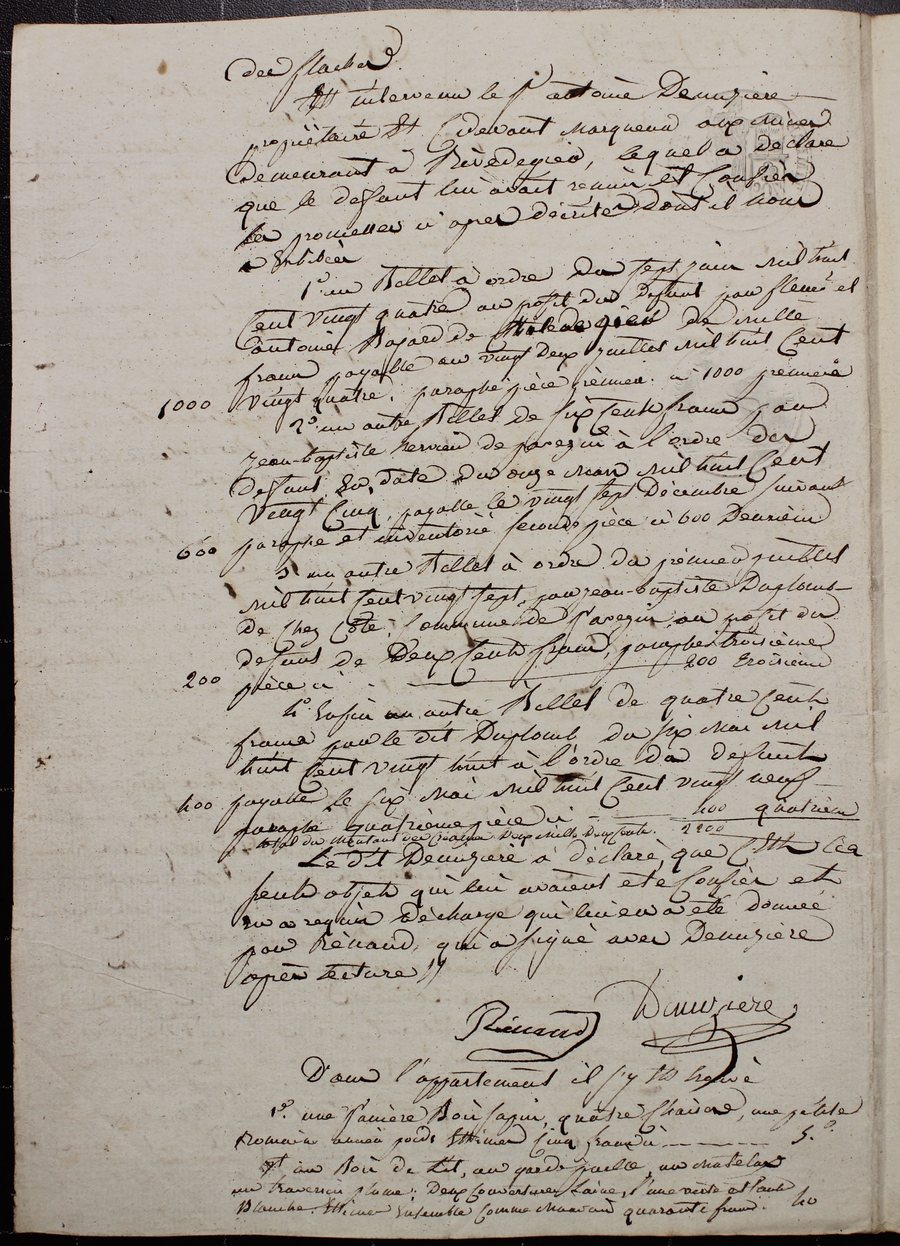 des flaches
Est intervenu le Sr antoine Denuzière
propriétaire Et Cidevant marqueur aux mines
Demeurant à Rivedegier, lequel a déclaré
que le deffunt lui avait remis et Confier
les promesses ci après décrites Dont il nous
a Exhibé
1° un Billet à ordre du sept juin mil huit
Cent vingt quatre au profit du Deffunt par fleurie et
antoine Bajard de Rivedegier de mille
francs payable au vingt deux juillet mil huit Cent
1000 vingt quatre. paraphé pièce première ci 1000 première
2° un autre Billet de six Cents francs par
jean-baptiste hervier de farezin à l'ordre du
deffunt En date du onze Mars mil huit Cent
Vingt Cinq, payable le vingt sept Décembre suivant
600 paraphé et inventorié seconde pièce ci 600 Deuxième
3° un autre Billet à ordre du premier juillet
mil huit Cent vingt sept, par jean-baptiste Duplomb
de Chez Coté, Commune de farezin au profit du
deffunt de Deux Cents francs, paraphé troisième
200 pièce ci 200 troisième
4° Enfin un autre Billet de quatre Cents
francs par le dit Duplomb du six Mai mil
huit Cent vingt huit à l'ordre du deffunt
400 payable le six Mai mil huit Cent vingt neuf
paraphé quatrième pièce ci 400 quatrième
total du montant des Créances Deux mille Deux Cents. 2200
Le dit Denuzière a déclaré, que C'Est Les
seuls objets qui lui avaient été Confier et
en a requis décharge qui lui en a été donnée
par Rénaud, qui a signé avec Denuzière
après lecture //
Rénaud Denuzière
Dans l'appartement il s'y Est trouvé
1° une Bois sapin, quatre Chaises, une petite
Romaine Estimer Cinq francs ci 5.
un Bois de Lit, un garde paille, un matelas
un traversin plume, Deux Couvertures Laine, l'une verte et l'autre
Blanche. Estimer Ensemble Comme Mauvais quarante francs. 40